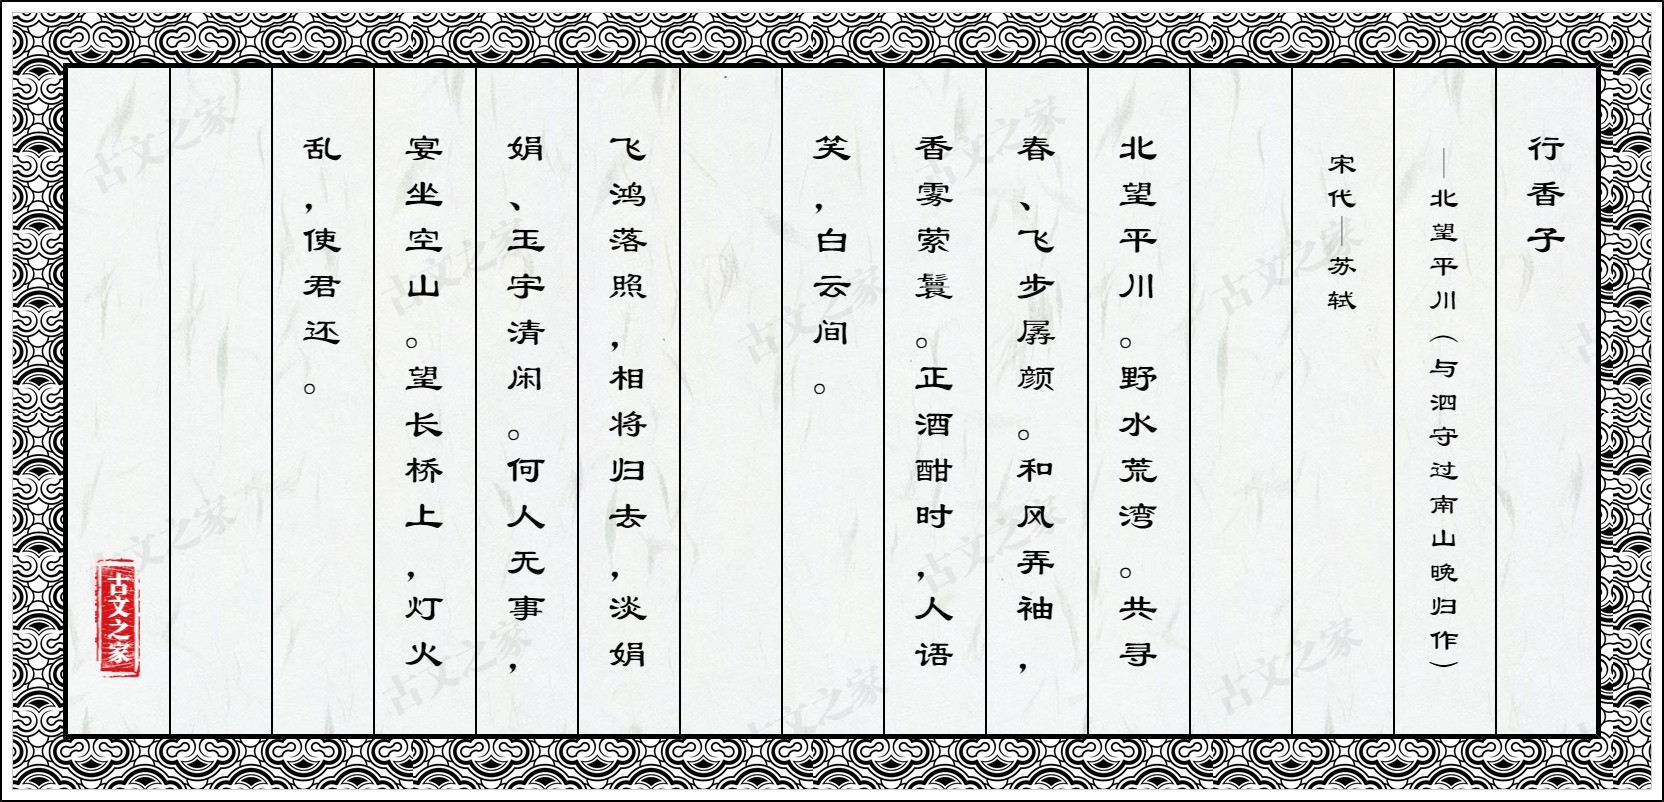 行香子
—北望平川（与泗守过南山晚归作）
宋代—苏轼
北望平川。野水荒湾。共寻
春、飞步孱颜。和风弄袖，
香雾萦鬟。正酒酣时，人语
笑，白云间。
飞鸿落照，相将归去，淡娟
娟、玉宇清闲。何人无事，
宴坐空山。望长桥上，灯火
乱，使君还。
古文之家